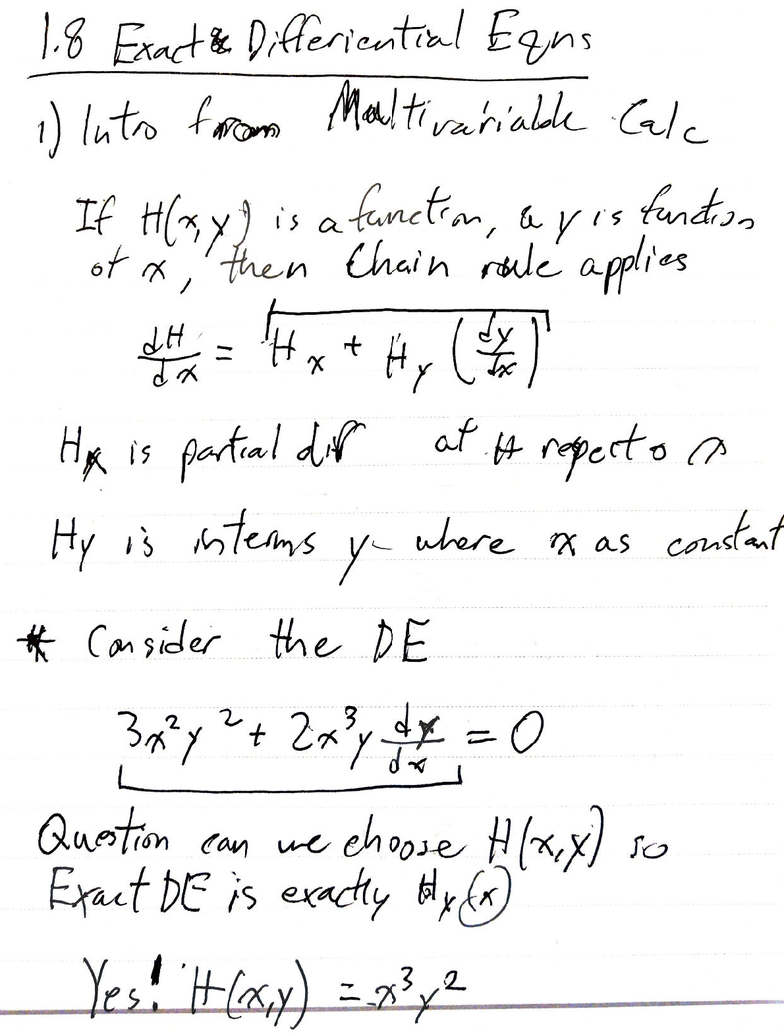 1.8 Exact Differiential Eqns
1) Intro from Multivariable Calc
If H(x,y) is a function, & y is function
of x, then Chain rule applies
dH/dx = Hx + Hy (dy/dx)
Hx is partial dif at H repect to x
Hy is interms y - where x as constant
* Consider the DE
3x²y² + 2x³y dy/dx = 0
Question can we choose H(x,y) so
Exact DE is exactly
Yes! H(x,y) = x³y²